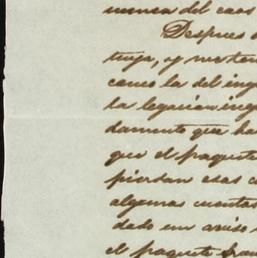 nunca del caos
Despues d
tuya, y no ten
como la del ing
la legacion ing
damente que ha
que el paquete
pierdan esas c
algunas cuantas
dado un aviso
el paquete fran